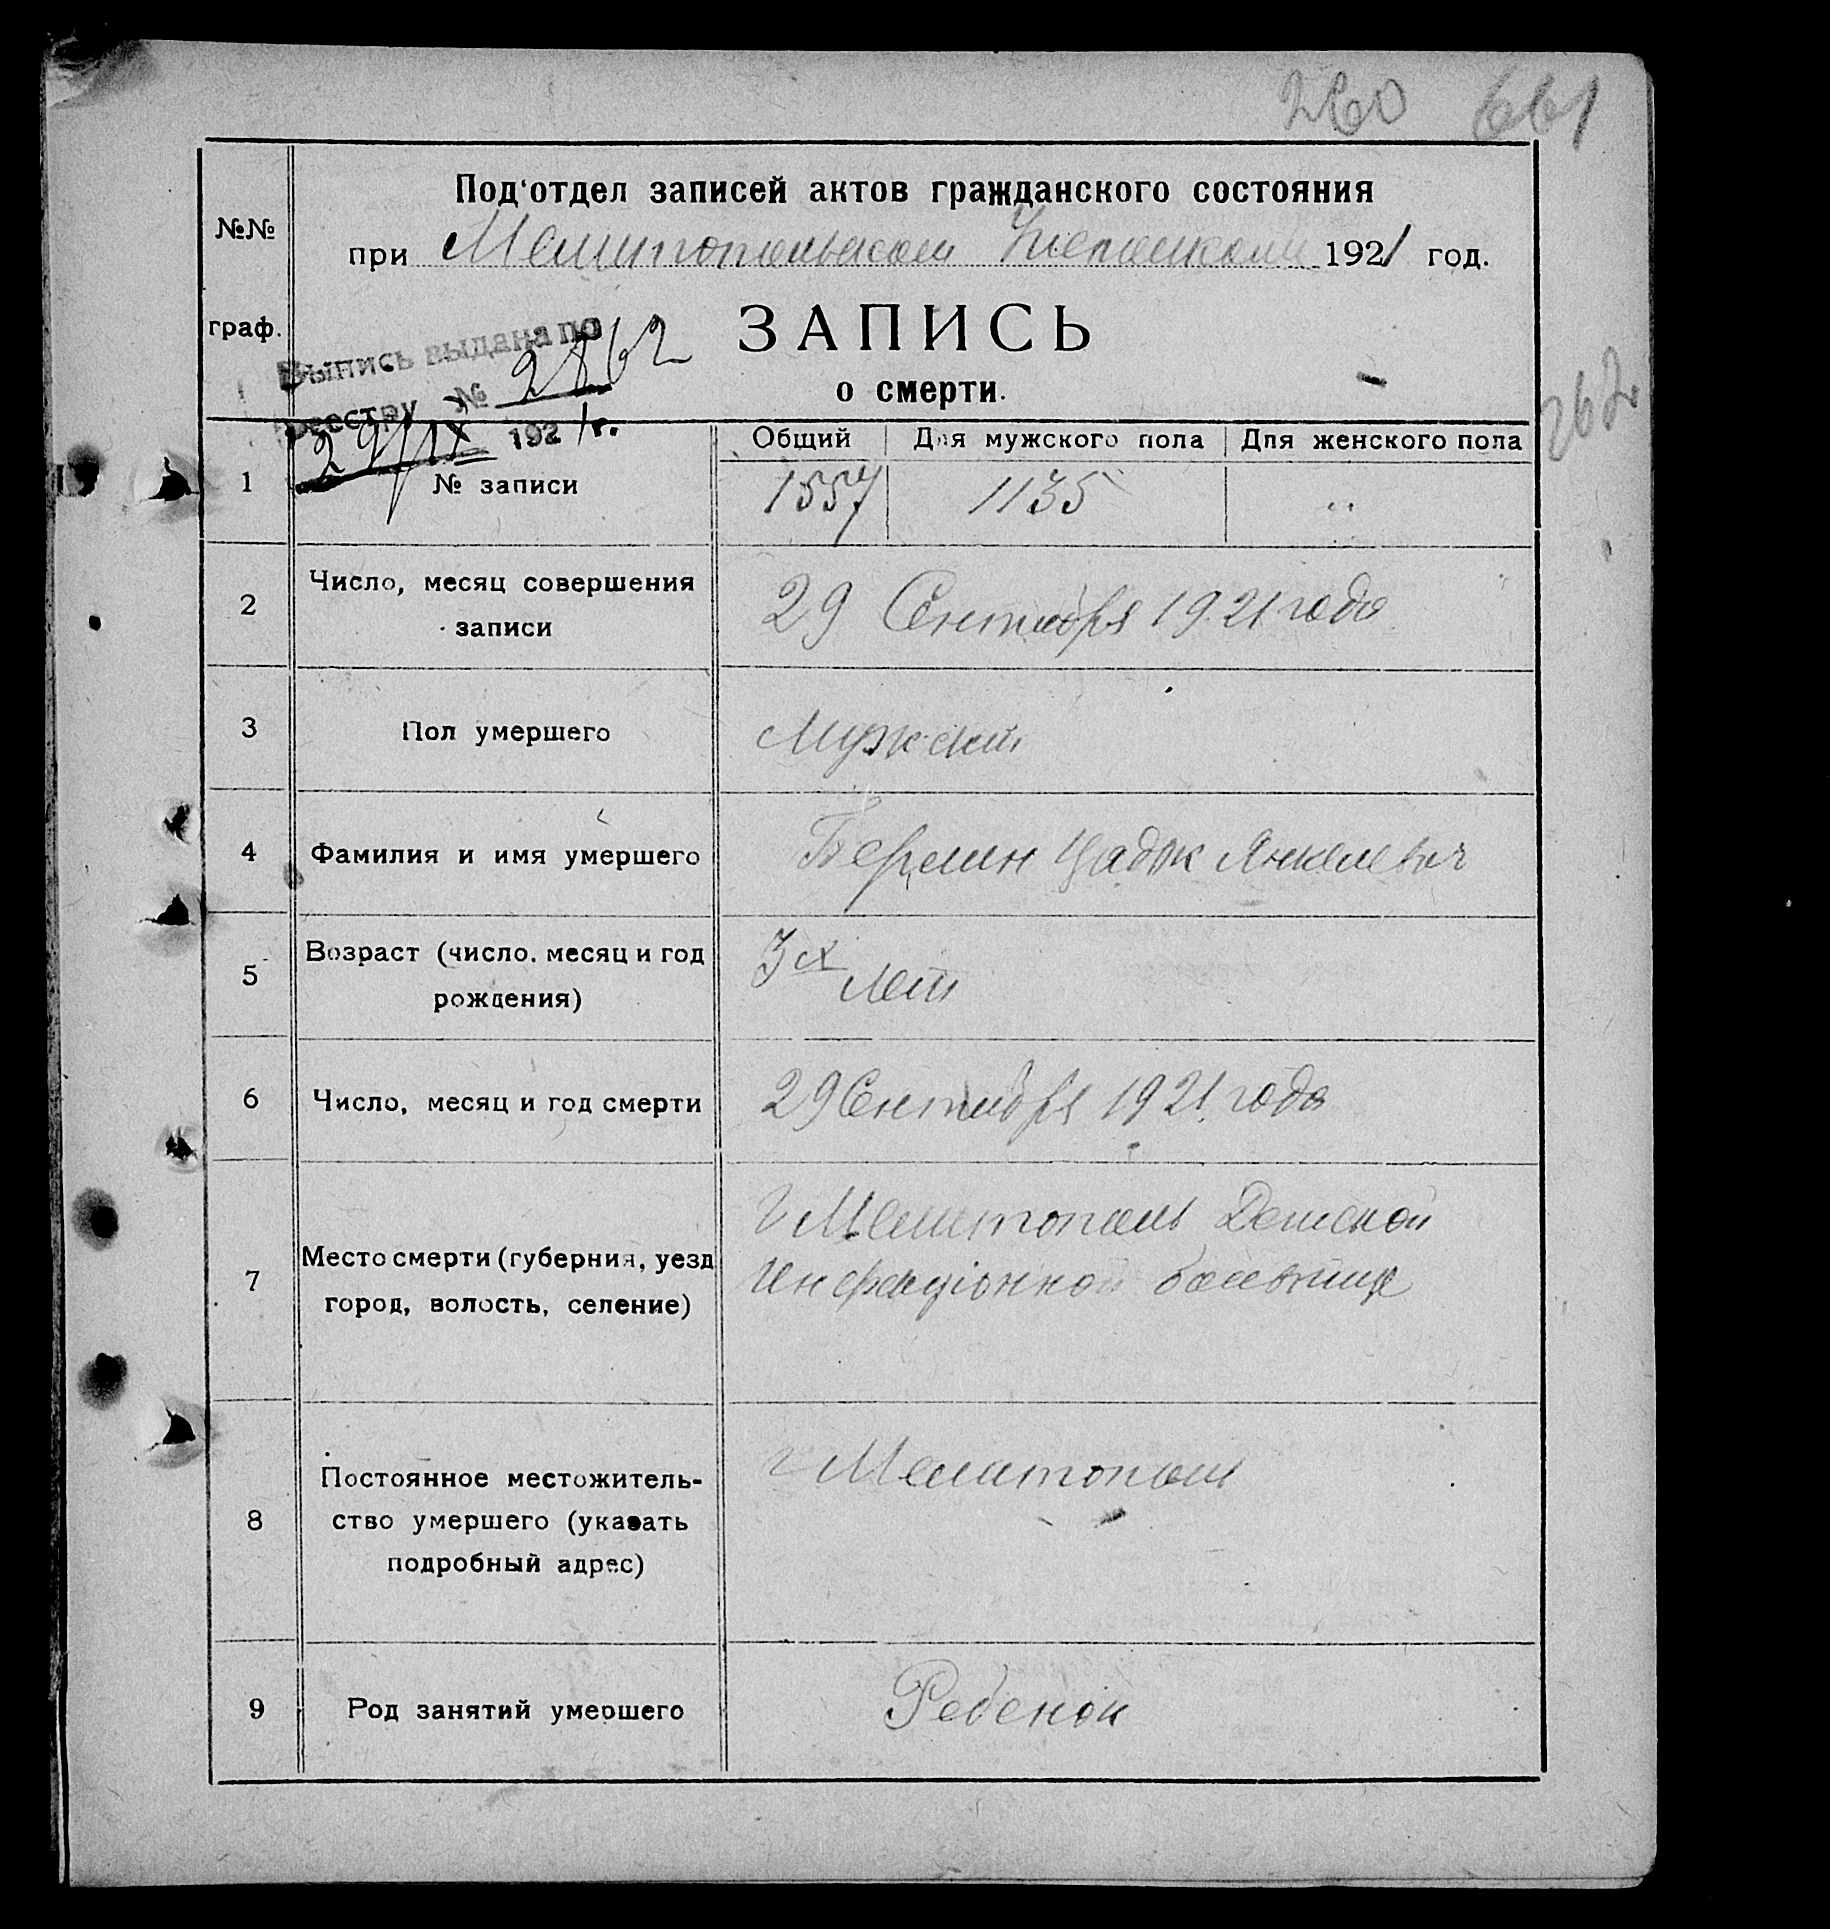 260 661
№№
граф.
Под'отдел записей актов гражданского состояния
при Мелитопольском 1921 год.
ЗАПИСЬ
о смерти.
Выпись выдана по
реестру № 2862
29/IX 1921 г.
262
Общий Для мужского пола Для женского пола
1 № записи 1557 1135 "
2 Число, месяц совершения
записи
29 Сентября 1921 года
3 Пол умершего Мужской
4 Фамилия и имя умершего Берлин Цадик Янкелевич
5 Возраст (число, месяц и год
рождения)
3х
лет
6 Число, месяц и год смерти 29 Сентября 1921 года
7 Место смерти (губерния, уезд
город, волость, селение)
г Мелитополь Детской
Инфекціонной больнице
8 Постоянное местожитель-
ство умершего (указать
подробный адрес)
г Мелитополь
9 Род занятий умершего Ребенок